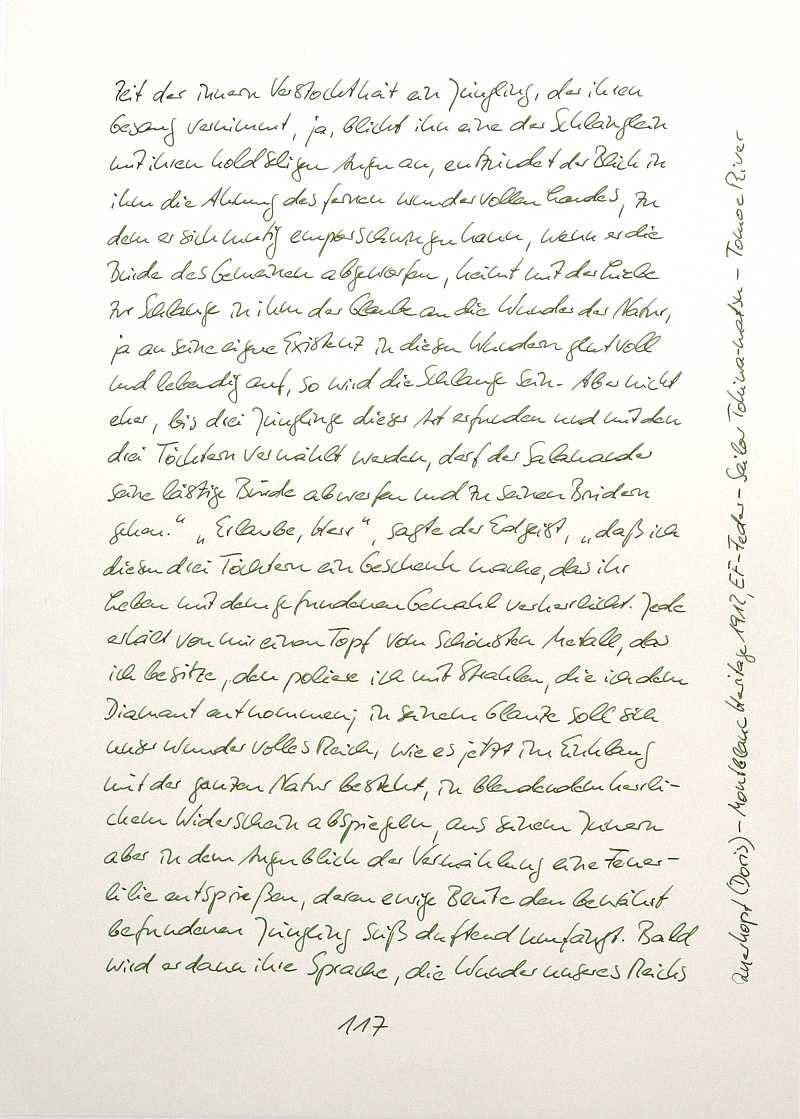 Zeit der innern Verstocktheit ein Jüngling, der ihren
Gesang vernimmt, ja, blickt ihn eine der Schlänglein
mit ihren holdseligen Augen an, entzündet der Blick in
ihm die Ahnung des fernen wundervollen Landes, zu
dem er sich mutig emporschwingen kann, wenn er die
Bürde des Gemeinen abgeworfen, keimt mit der Liebe
zur Schlange in ihm der Glaube an die Wunder der Natur,
ja an seine eigne Existenz in diesen Wundern glutvoll
und lebendig auf, so wird die Schlange sein. Aber nicht
eher, bis drei Jünglinge dieser Art erfunden und mit den
drei Töchtern vermählt werden, darf der Salamander
seine lästige Bürde abwerfen und zu seinen Brüdern
gehen.“ „Erlaube, Herr“, sagte der Erdgeist, „daß ich
diesen drei Töchtern ein Geschenk mache, das ihr
Leben mit dem gefundenen Gemahl verherrlicht. Jede
erhält von mir einen Topf vom schönsten Metall, das
ich besitze, den poliere ich mit Strahlen, die ich dem
Diamant entnommen; in seinem Glanze soll sich
unser wundervolles Reich, wie es jetzt im Einklang
mit der ganzen Natur besteht, in blendendem herrli-
chem Widerschein abspiegeln, aus seinem Innern
aber in dem Augenblick der Vermählung eine Feuer-
lilie entsprießen, deren ewige Blüte den bewährt
befundenen Jüngling süß duftend umfängt. Bald
wird er dann ihre Sprache, die Wunder unseres Reichs
117
(Doris) – Montblanc Heritage 1912, EF-Feder – Sailor Tokiwa-matsu – Tomoe River